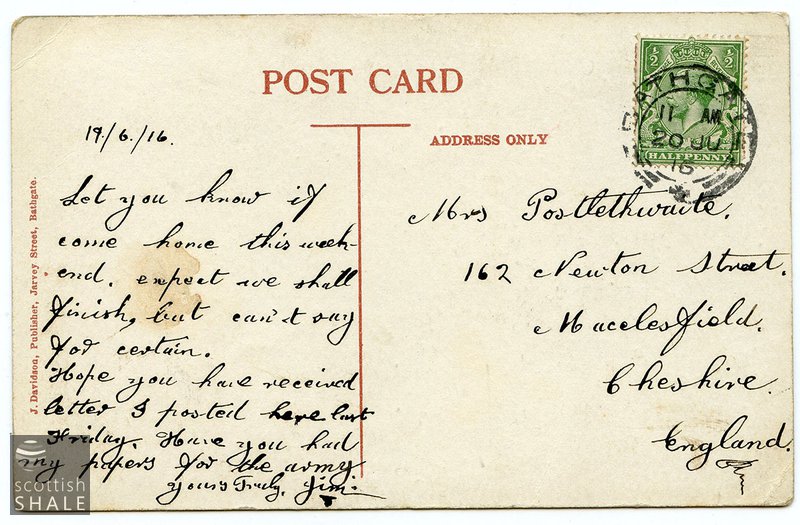 POST CARD
ADDRESS ONLY
½ ½
HALFPENNY
BATHGATE
11 AM
20 JU
16
19/6/16.
Let you know if
come home this week-
end. expect we shall
finish, but can't say
for certain.
Hope you have received
letter I posted here last
Friday. Have you had
my papers for the army
Yours Truly, Jim.
Mrs Postlethwaite.
162 Newton Street.
Macclesfield.
Cheshire.
England.
J. Davidson, Publisher, Jarvey Street, Bathgate.
scottish
SHALE